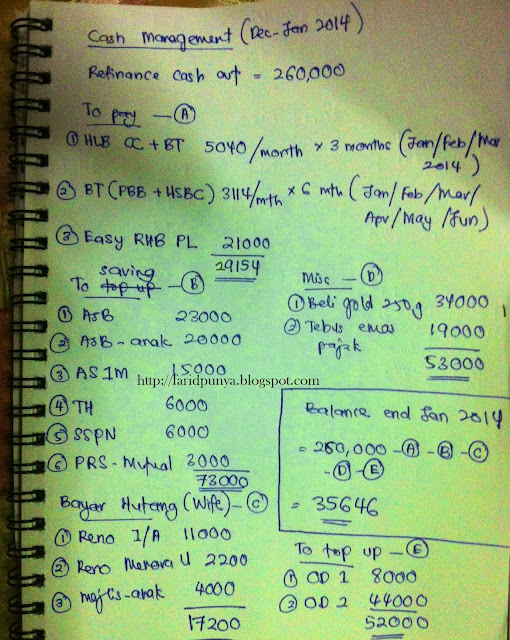 Cash Management (Dec-Jan 2014)
Refinance cash out = 260,000
To pay — A
① HLB CC + BT 5040/month × 3 months (Jan/Feb/Mar
2014)
② BT (PBB + HSBC) 3114/mth × 6 mth (Jan/Feb/Mar/
Apr/May/Jun)
③ Easy RHB PL 21000
29154
saving
To top up — B
① ASB 23000
② ASB-anak 20000
③ AS1M 15000
④ TH 6000
⑤ SSPN 6000
⑥ PRS-Mutual 3000
73000
Bayar Hutang (Wife) — C
① Reno I/A 11000
② Reno Menara U 2200
③ majlis-anak 4000
17200
Misc — D
① Beli gold 250g 34000
② Tebus emas
pajak 19000
53000
http://laridpunya.blogspot.com
Balance end Jan 2014
= 260,000 - A - B - C
- D - E
= 35646
To top up — E
① OD 1 8000
② OD 2 44000
52000